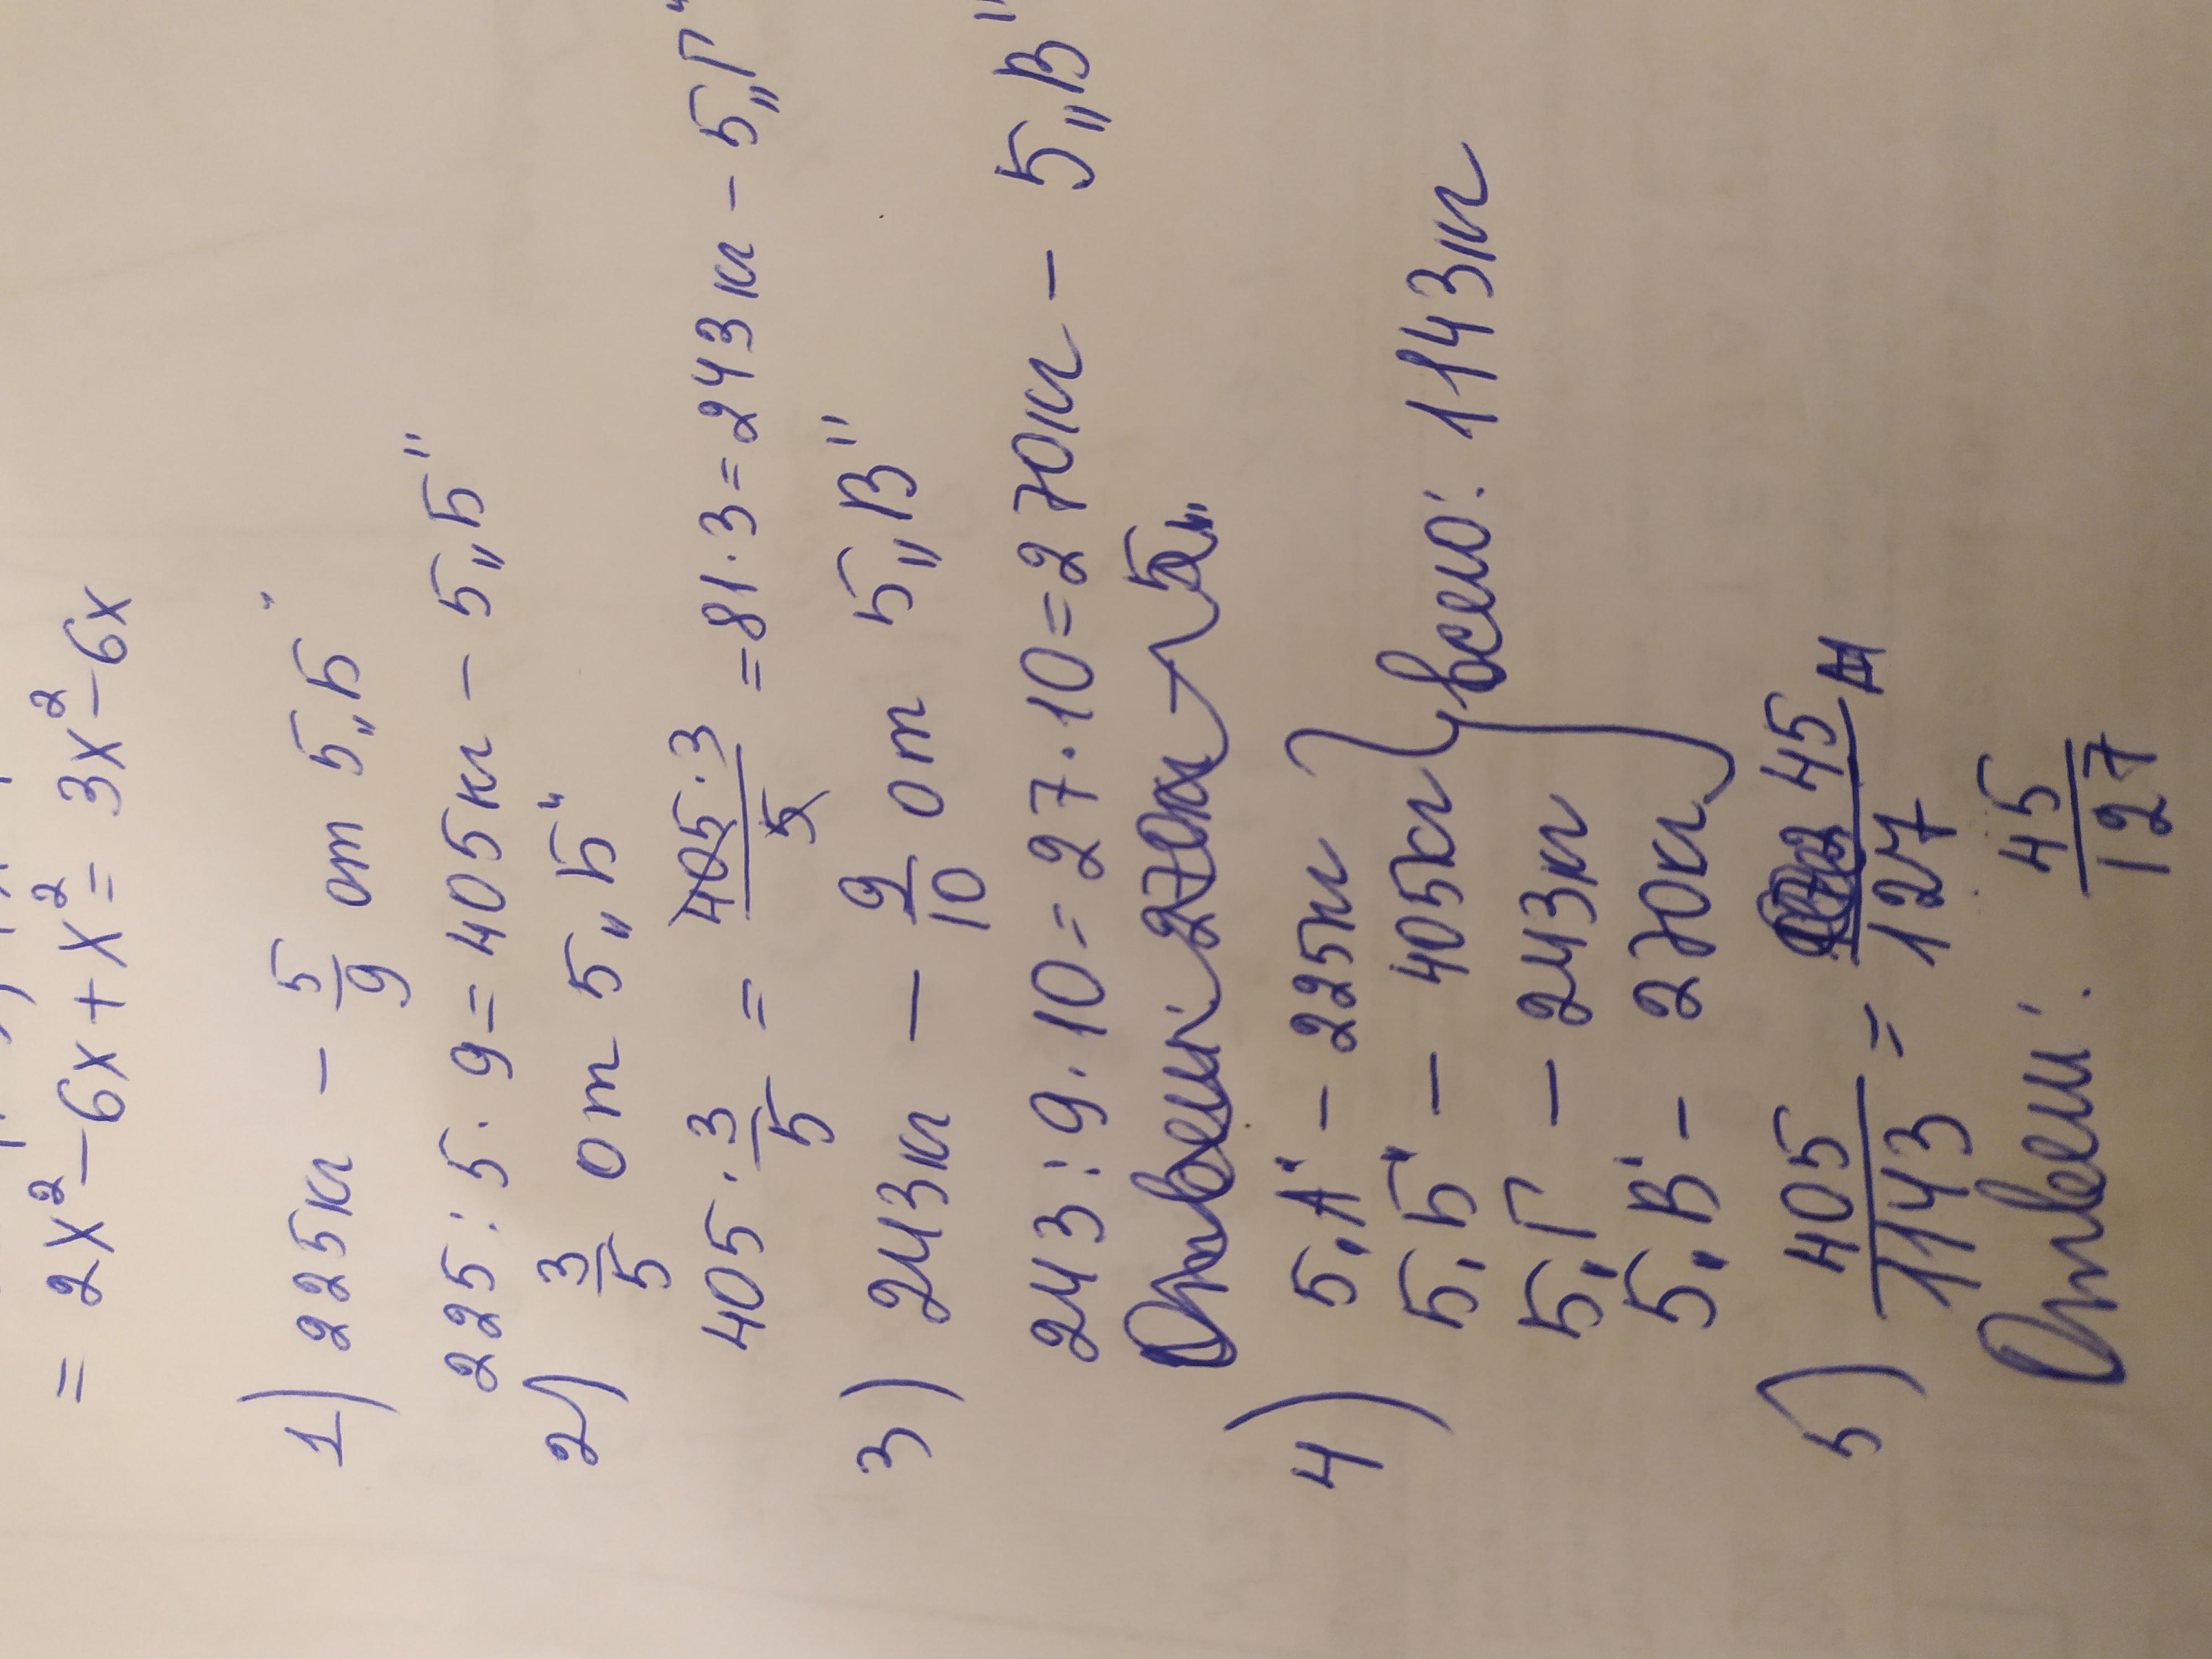 = 2x² - 6x + x² = 3x² - 6x
1) 225кг - 5/9 от 5 „Б"
225 : 5 . 9 = 405кг - 5 „Б"
2) 3/5 от 5 „Б"
405 . 3/5 = 405 . 3/5 = 81 . 3 = 243 кг - 5 „Г"
3) 243кг - 9/10 от 5 „В"
243 : 9 . 10 = 27 . 10 = 270кг - 5 „В"
Ответ: 270кг
4) 5 „А" - 225кг
5 „Б" - 405кг
всего: 1143кг
5 „Г" - 243кг
5 „В" - 270кг
5) 405/1143 = 45/127
Ответ: 45/127